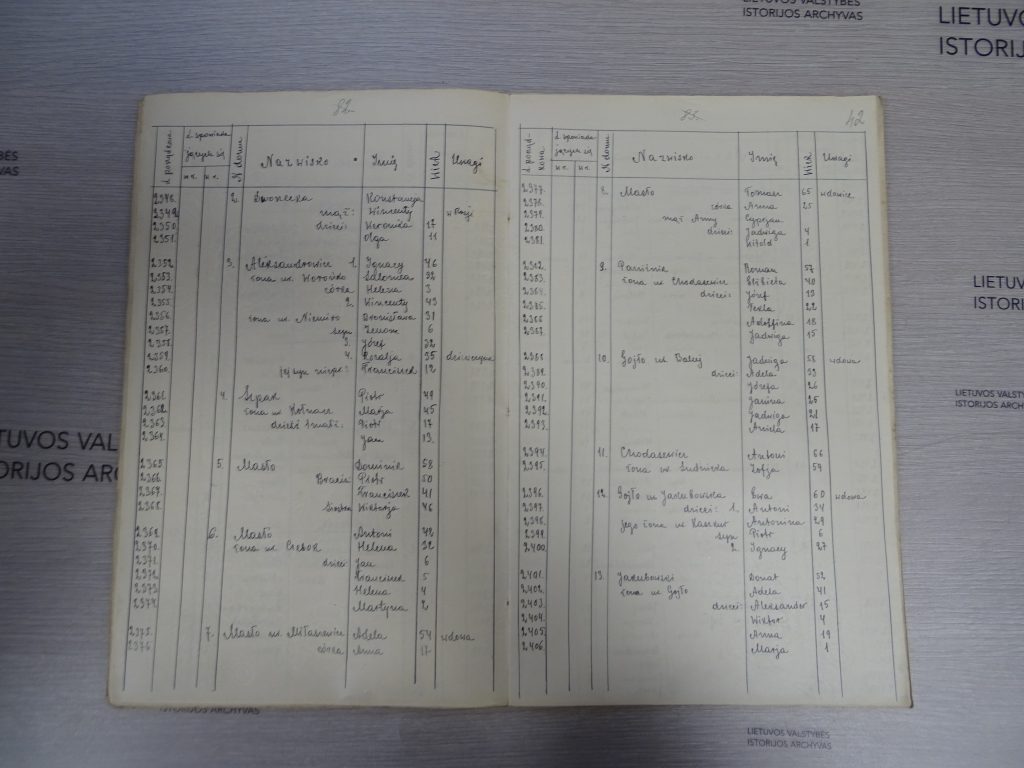 LIETUVOS VALSTYBĖS
ISTORIJOS ARCHYVAS
LIETU
ISTORIJ
82
N domu
Nazwisko
Imię
Wiek
Uwagi
2. Konstancja
mąż: Wincenty w Rosji
2350. dzieci: Weronika 17
2351. Olga 11
2352. 3. Aleksandrowicz 1. Ignacy 46
2353. żona ur. Salomea 32
2354. córka Helena 3
2355. 2. Wincenty 43
2356. żona ur. Bronisława 31
2357. syn Zenon 6
2358. 3. Józef 32
2359. 4. Rozalja 35
2360. jej syn Franciszek 12
2361. 4. Piotr 49
2362. żona ur. Marja 45
2363. Piotr 17
2364. Jan 13
2365. 5. Masło Dominik 58
2366. Bracia Piotr 50
2367. Franciszek 41
2368. siostra Wiktorja 46
2369. 6. Masło Antoni 42
2370. żona ur. Helena 32
2371. dzieci: Jan 6
2372. Franciszek 5
2373. Helena 4
2374. Martyna 2
2375. 7. Masło ur. Miłaszewicz Adela 54 wdowa
2376. córka Anna 17
42
N domu
Nazwisko
Imię
Wiek
Uwagi
2377. 8. Masło Tomasz 65 wdowiec
2378. córka Anna 25
2379. mąż Anny Cyprjan
2380. dzieci: Jadwiga 4
2381. Witold 1
2382. 9. Roman 57
2383. żona ur. Chodasewicz Elżbieta 40
2384. dzieci: Józef 13
2385. Tekla 22
2386. Adolfina 18
2387. Jadwiga 15
2388. 10. Gojło ur. Jadwiga 58 wdowa
2389. dzieci: Adela 33
2390. Józefa 26
2391. Janina 25
2392. Jadwiga 21
2393. Aniela 17
2394. 11. Chodasewicz Antoni 66
2395. żona ur. Zofja 59
2396. 12. Gojło ur. Jakubowska Ewa 60 wdowa
2397. dzieci: 1. Antoni 34
2398. Jego żona ur. Antonina 29
2399. syn Piotr 6
2400. 2. Ignacy 27
2401. 13. Jakubowski Donat 52
2402. żona ur. Gojło Adela 41
2403. dzieci: Aleksander 15
2404. Wiktor 4
2405. Anna 19
2406. Marja 1
LIETUVOS VALSTYBĖS
ISTORIJOS ARCHYVAS